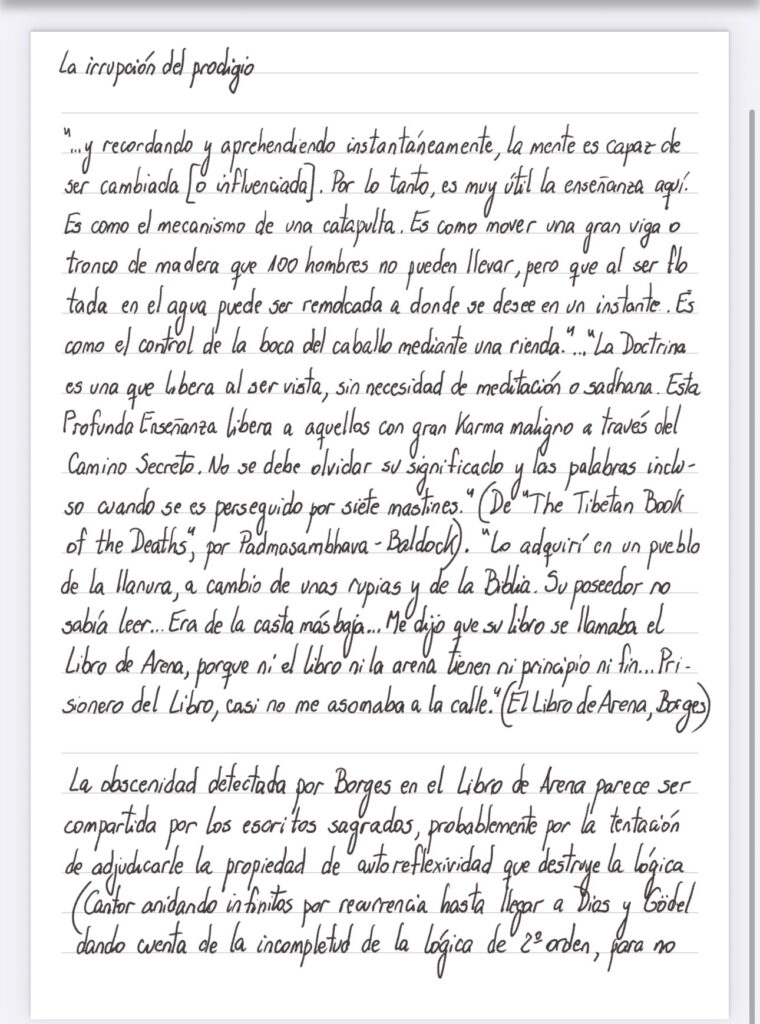 La irrupción del prodigio
"...y recordando y aprehendiendo instantáneamente, la mente es capaz de
ser cambiada [o influenciada]. Por lo tanto, es muy útil la enseñanza aquí.
Es como el mecanismo de una catapulta. Es como mover una gran viga o
tronco de madera que 100 hombres no pueden llevar, pero que al ser flo
tada en el agua puede ser remolcada a donde se desee en un instante. Es
como el control de la boca del caballo mediante una rienda."..."La Doctrina
es una que libera al ser vista, sin necesidad de meditación o sadhana. Esta
Profunda Enseñanza libera a aquellos con gran Karma maligno a través del
Camino Secreto. No se debe olvidar su significado y las palabras inclu-
so cuando se es perseguido por siete mastines." (De "The Tibetan Book
of the Deaths", por Padmasambhava - Baldock). "Lo adquirí en un pueblo
de la llanura, a cambio de unas rupias y de la Biblia. Su poseedor no
sabía leer... Era de la casta más baja... Me dijo que su libro se llamaba el
Libro de Arena, porque ni el libro ni la arena tienen ni principio ni fin... Pri-
sionero del Libro, casi no me asomaba a la calle." (El Libro de Arena, Borges)
La obscenidad detectada por Borges en el Libro de Arena parece ser
compartida por los escritos sagrados, probablemente por la tentación
de adjudicarle la propiedad de autoreflexividad que destruye la lógica
(Cantor anidando infinitas por recurrencia hasta llegar a Dios y Gödel
dando cuenta de la incompletud de la lógica de 2º orden, para no